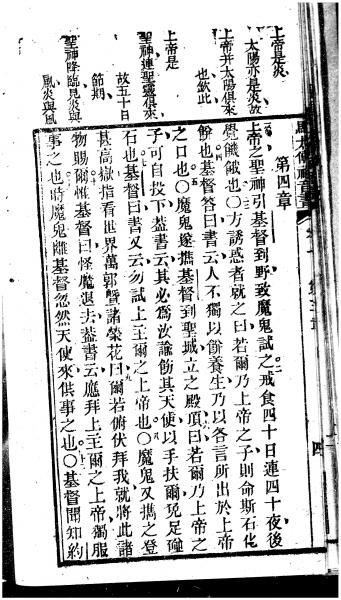 上帝是炎
太陽亦是炎故
上帝幷太陽俱來
也欽此
上帝是
聖神連聖靈俱來
故五十日
節期
聖神降臨見炎與
風炎與風
第四章
上帝之聖神引基督到野致魔鬼試之戒食四十日連四十夜後
覺餓也○方誘惑者就之曰若爾乃上帝之子則命斯石化
餅也基督答曰書云人不獨以餅養生乃以各言所出於上帝
之口也○魔鬼遂攜基督到聖城立之殿頂曰若爾乃上帝之
子可自投下蓋書云其必為汝諭飭其天使以手扶爾免足碰
石也基督曰書又云勿試上主爾之上帝也○魔鬼又攜之登
甚高嶽指看世界萬郭暨諸榮花曰爾若俯伏拜我就將此諸
物賜爾惟基督曰怪魔退去蓋書云應拜上主爾之上帝獨服
事之也時魔鬼離基督忽然天使來供事之也○基督聞知約
四